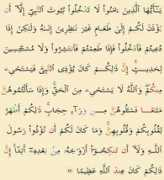 يَـٰٓأَيُّهَا ٱلَّذِينَ ءَامَنُوا۟ لَا تَدْخُلُوا۟ بُيُوتَ ٱلنَّبِىِّ إِلَّآ أَن
يُؤْذَنَ لَكُمْ إِلَىٰ طَعَامٍ غَيْرَ نَـٰظِرِينَ إِنَىٰهُ وَلَـٰكِنْ إِذَا
دُعِيتُمْ فَٱدْخُلُوا۟ فَإِذَا طَعِمْتُمْ فَٱنتَشِرُوا۟ وَلَا مُسْتَـْٔنِسِينَ
لِحَدِيثٍ ۚ إِنَّ ذَٰلِكُمْ كَانَ يُؤْذِى ٱلنَّبِىَّ فَيَسْتَحْىِۦ
مِنكُمْ ۖ وَٱللَّهُ لَا يَسْتَحْىِۦ مِنَ ٱلْحَقِّ ۚ وَإِذَا سَأَلْتُمُوهُنَّ
مَتَـٰعًا فَسْـَٔلُوهُنَّ مِن وَرَآءِ حِجَابٍ ۚ ذَٰلِكُمْ أَطْهَرُ
لِقُلُوبِكُمْ وَقُلُوبِهِنَّ ۚ وَمَا كَانَ لَكُمْ أَن تُؤْذُوا۟ رَسُولَ
ٱللَّهِ وَلَآ أَن تَنكِحُوٓا۟ أَزْوَٰجَهُۥ مِنۢ بَعْدِهِۦٓ أَبَدًا ۚ إِنَّ
ذَٰلِكُمْ كَانَ عِندَ ٱللَّهِ عَظِيمًا